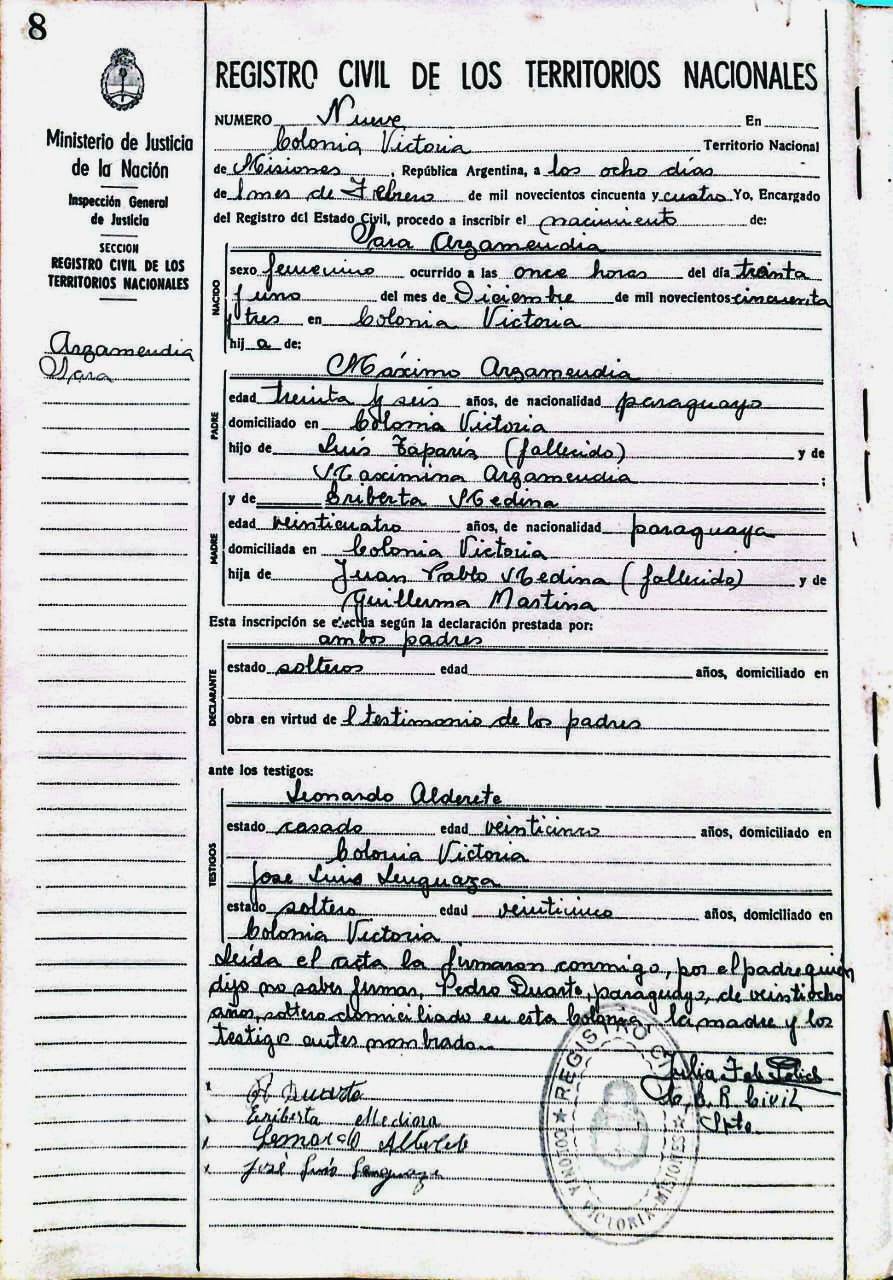 8
REGISTRO CIVIL DE LOS TERRITORIOS NACIONALES
Ministerio de Justicia
de la Nación
Inspección General
de Justicia
SECCION
REGISTRO CIVIL DE LOS
TERRITORIOS NACIONALES
Arzamendia
Sara
NUMERO Nueve En
Colonia Victoria Territorio Nacional
de Misiones, República Argentina, a los ocho días
del mes de Febrero de mil novecientos cincuenta y cuatro Yo, Encargado
del Registro del Estado Civil, procedo a inscribir el nacimiento de:
Sara Arzamendia
NACIDO
sexo femenino ocurrido a las once horas del día treinta
y uno del mes de Diciembre de mil novecientos cincuenta
y tres en Colonia Victoria
hija de:
PADRE
Máximo Arzamendia
edad treinta y seis años, de nacionalidad paraguayo
domiciliado en Colonia Victoria
hijo de Luis (fallecido) y de
Maximina Arzamendia ;
MADRE
y de Eriberta Medina
edad veinticuatro años, de nacionalidad paraguaya
domiciliada en Colonia Victoria
hija de Juan Pablo Medina (fallecido) y de
Guillerma Martina
Esta inscripción se efectúa según la declaración prestada por:
DECLARANTE
ambos padres
estado solteros edad años, domiciliado en
obra en virtud de l testimonio de los padres
ante los testigos:
TESTIGOS
Leonardo Alderete
estado casado edad veinticinco años, domiciliado en
Colonia Victoria
Jose Luis Lenguaza
estado soltero edad veinticinco años, domiciliado en
Colonia Victoria
Leída el acta la firmaron conmigo, por el padre quien
dijo no saber firmar, Pedro Duarte, paraguayo, de veintiocho
años, soltero domiciliado en esta Colonia, la madre y los
testigos antes nombrado..
Julia
R. Civil
Spte.
P Duarte
Eriberta Medina
Leonardo Alderete
José Luis Lenguaza
REGISTRO CIVIL
COLONIA VICTORIA-MISIONES